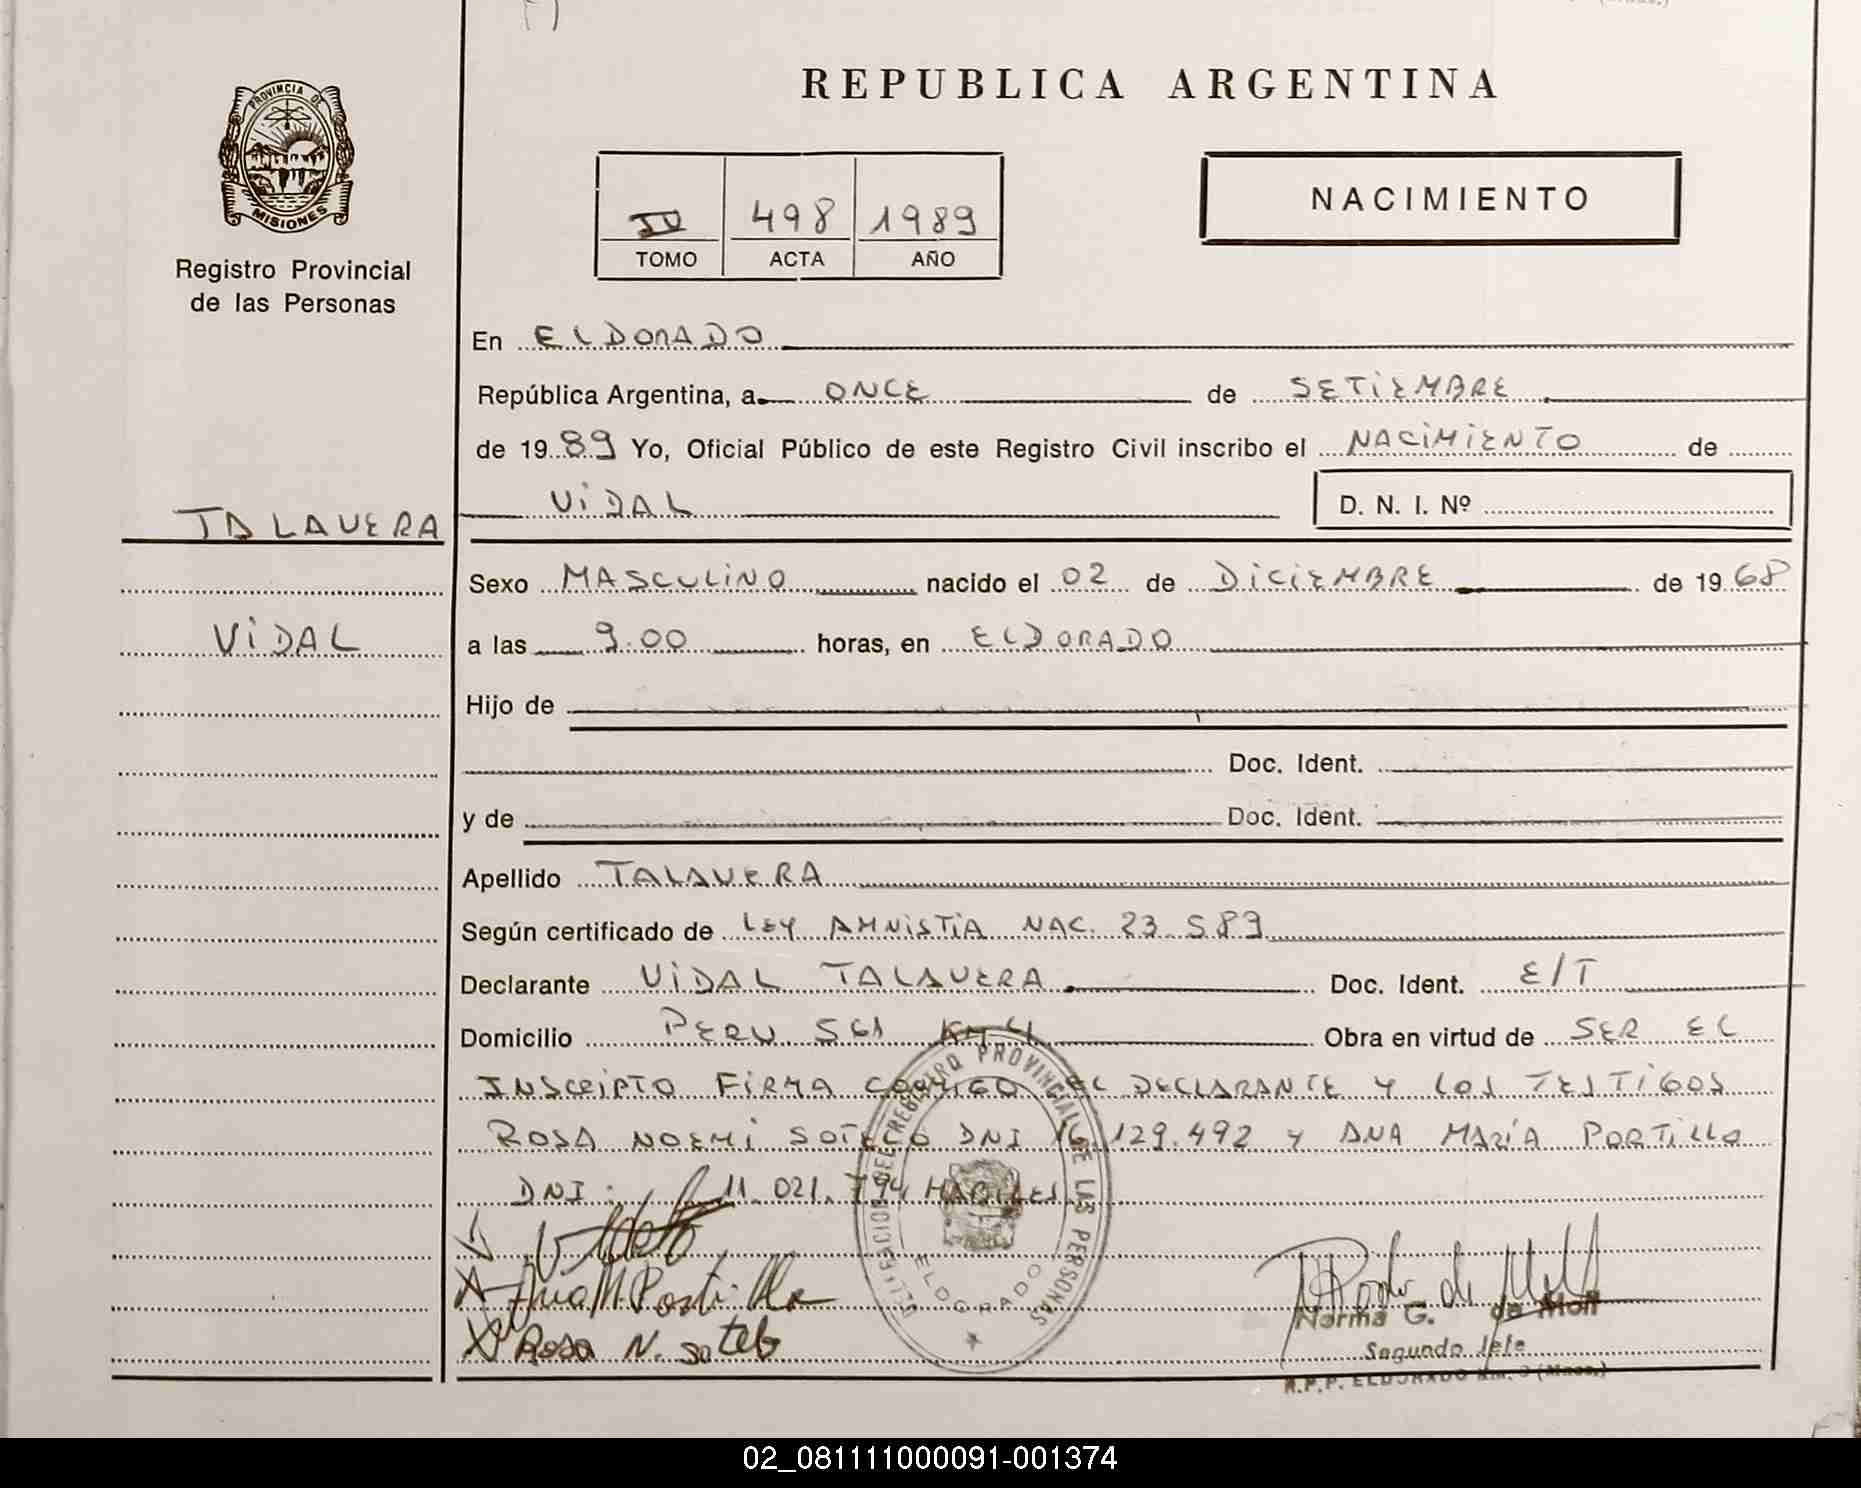 REPUBLICA ARGENTINA
PROVINCIA DE
MISIONES
Registro Provincial
de las Personas
IV 498 1989
TOMO ACTA AÑO
NACIMIENTO
En ELDORADO
República Argentina, a ONCE de SETIEMBRE
de 1989 Yo, Oficial Público de este Registro Civil inscribo el NACIMIENTO de
TALAVERA
VIDAL
D. N. I. Nº
Sexo MASCULINO nacido el 02 de DICIEMBRE de 1968
VIDAL
a las 9.00 horas, en ELDORADO
Hijo de
Doc. Ident.
y de Doc. Ident.
Apellido TALAVERA
Según certificado de LEY AMNISTIA NAC. 23.589
Declarante VIDAL TALAVERA Doc. Ident. E/T
Domicilio PERU 561 KM 4 Obra en virtud de SER EL
INSCRIPTO FIRMA CONMIGO EL DECLARANTE Y LOS TESTIGOS
ROSA NOEMI SOTELO DNI 16.129.492 Y ANA MARÍA PORTILLO
DNI: 11.021.794 HABILES
DELEGACION DEL REGISTRO PROVINCIAL DE LAS PERSONAS
ELDORADO
Ana M Portillo
Rosa N. Sotelo
Norma G. de Moll
Segundo Jefe
R.P.P. ELDORADO
02_081111000091-001374